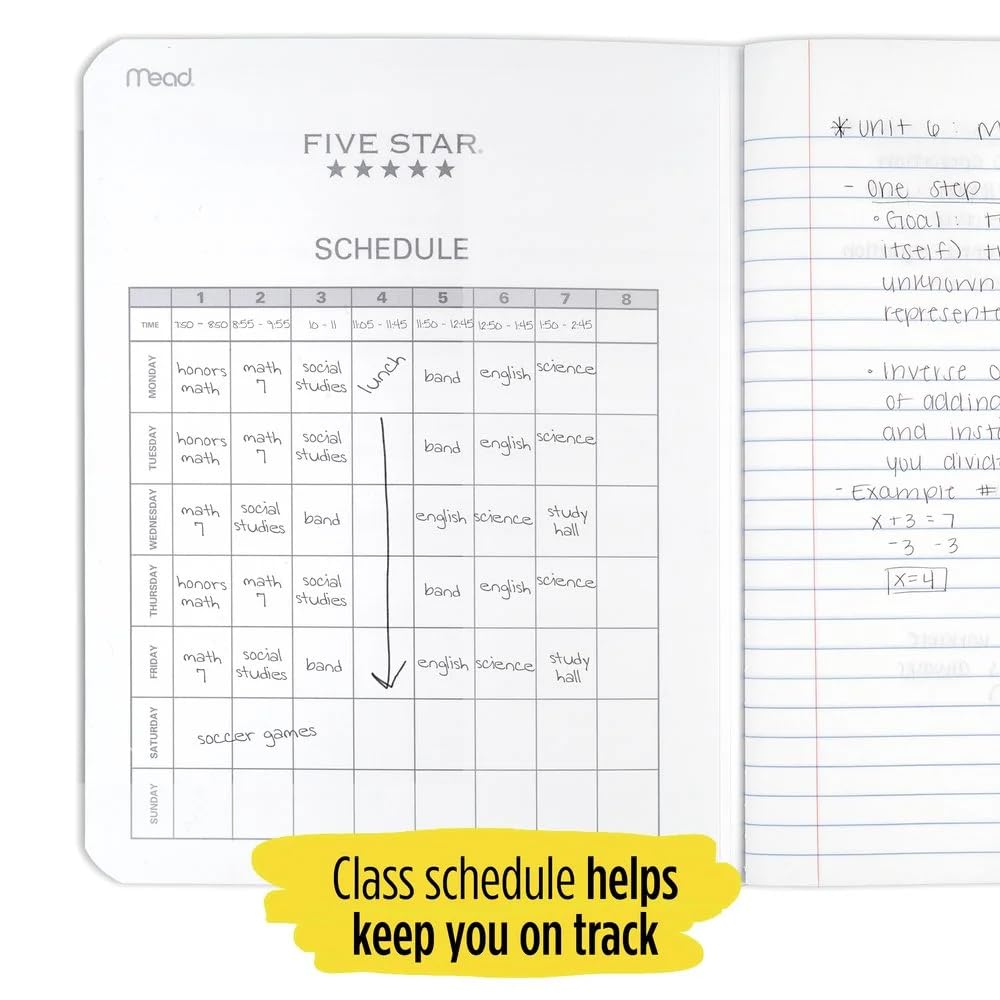 Mead®
FIVE STAR®
★★★★★
SCHEDULE
1 2 3 4 5 6 7 8
TIME 7:50 - 8:50 8:55 - 9:55 10 - 11 11:05 - 11:45 11:50 - 12:45 12:50 - 1:45 1:50 - 2:45
MONDAY honors math math 7 social studies lunch band english science
TUESDAY honors math math 7 social studies band english science
WEDNESDAY math 7 social studies band english science study hall
THURSDAY honors math math 7 social studies band english science
FRIDAY math 7 social studies band english science study hall
SATURDAY soccer games
SUNDAY
* Unit 6:
- One step
• Goal:
itself)
unknown
• Inverse
of adding
and
you
- Example #
x + 3 = 7
-3 -3
x = 4
Class schedule helps
keep you on track